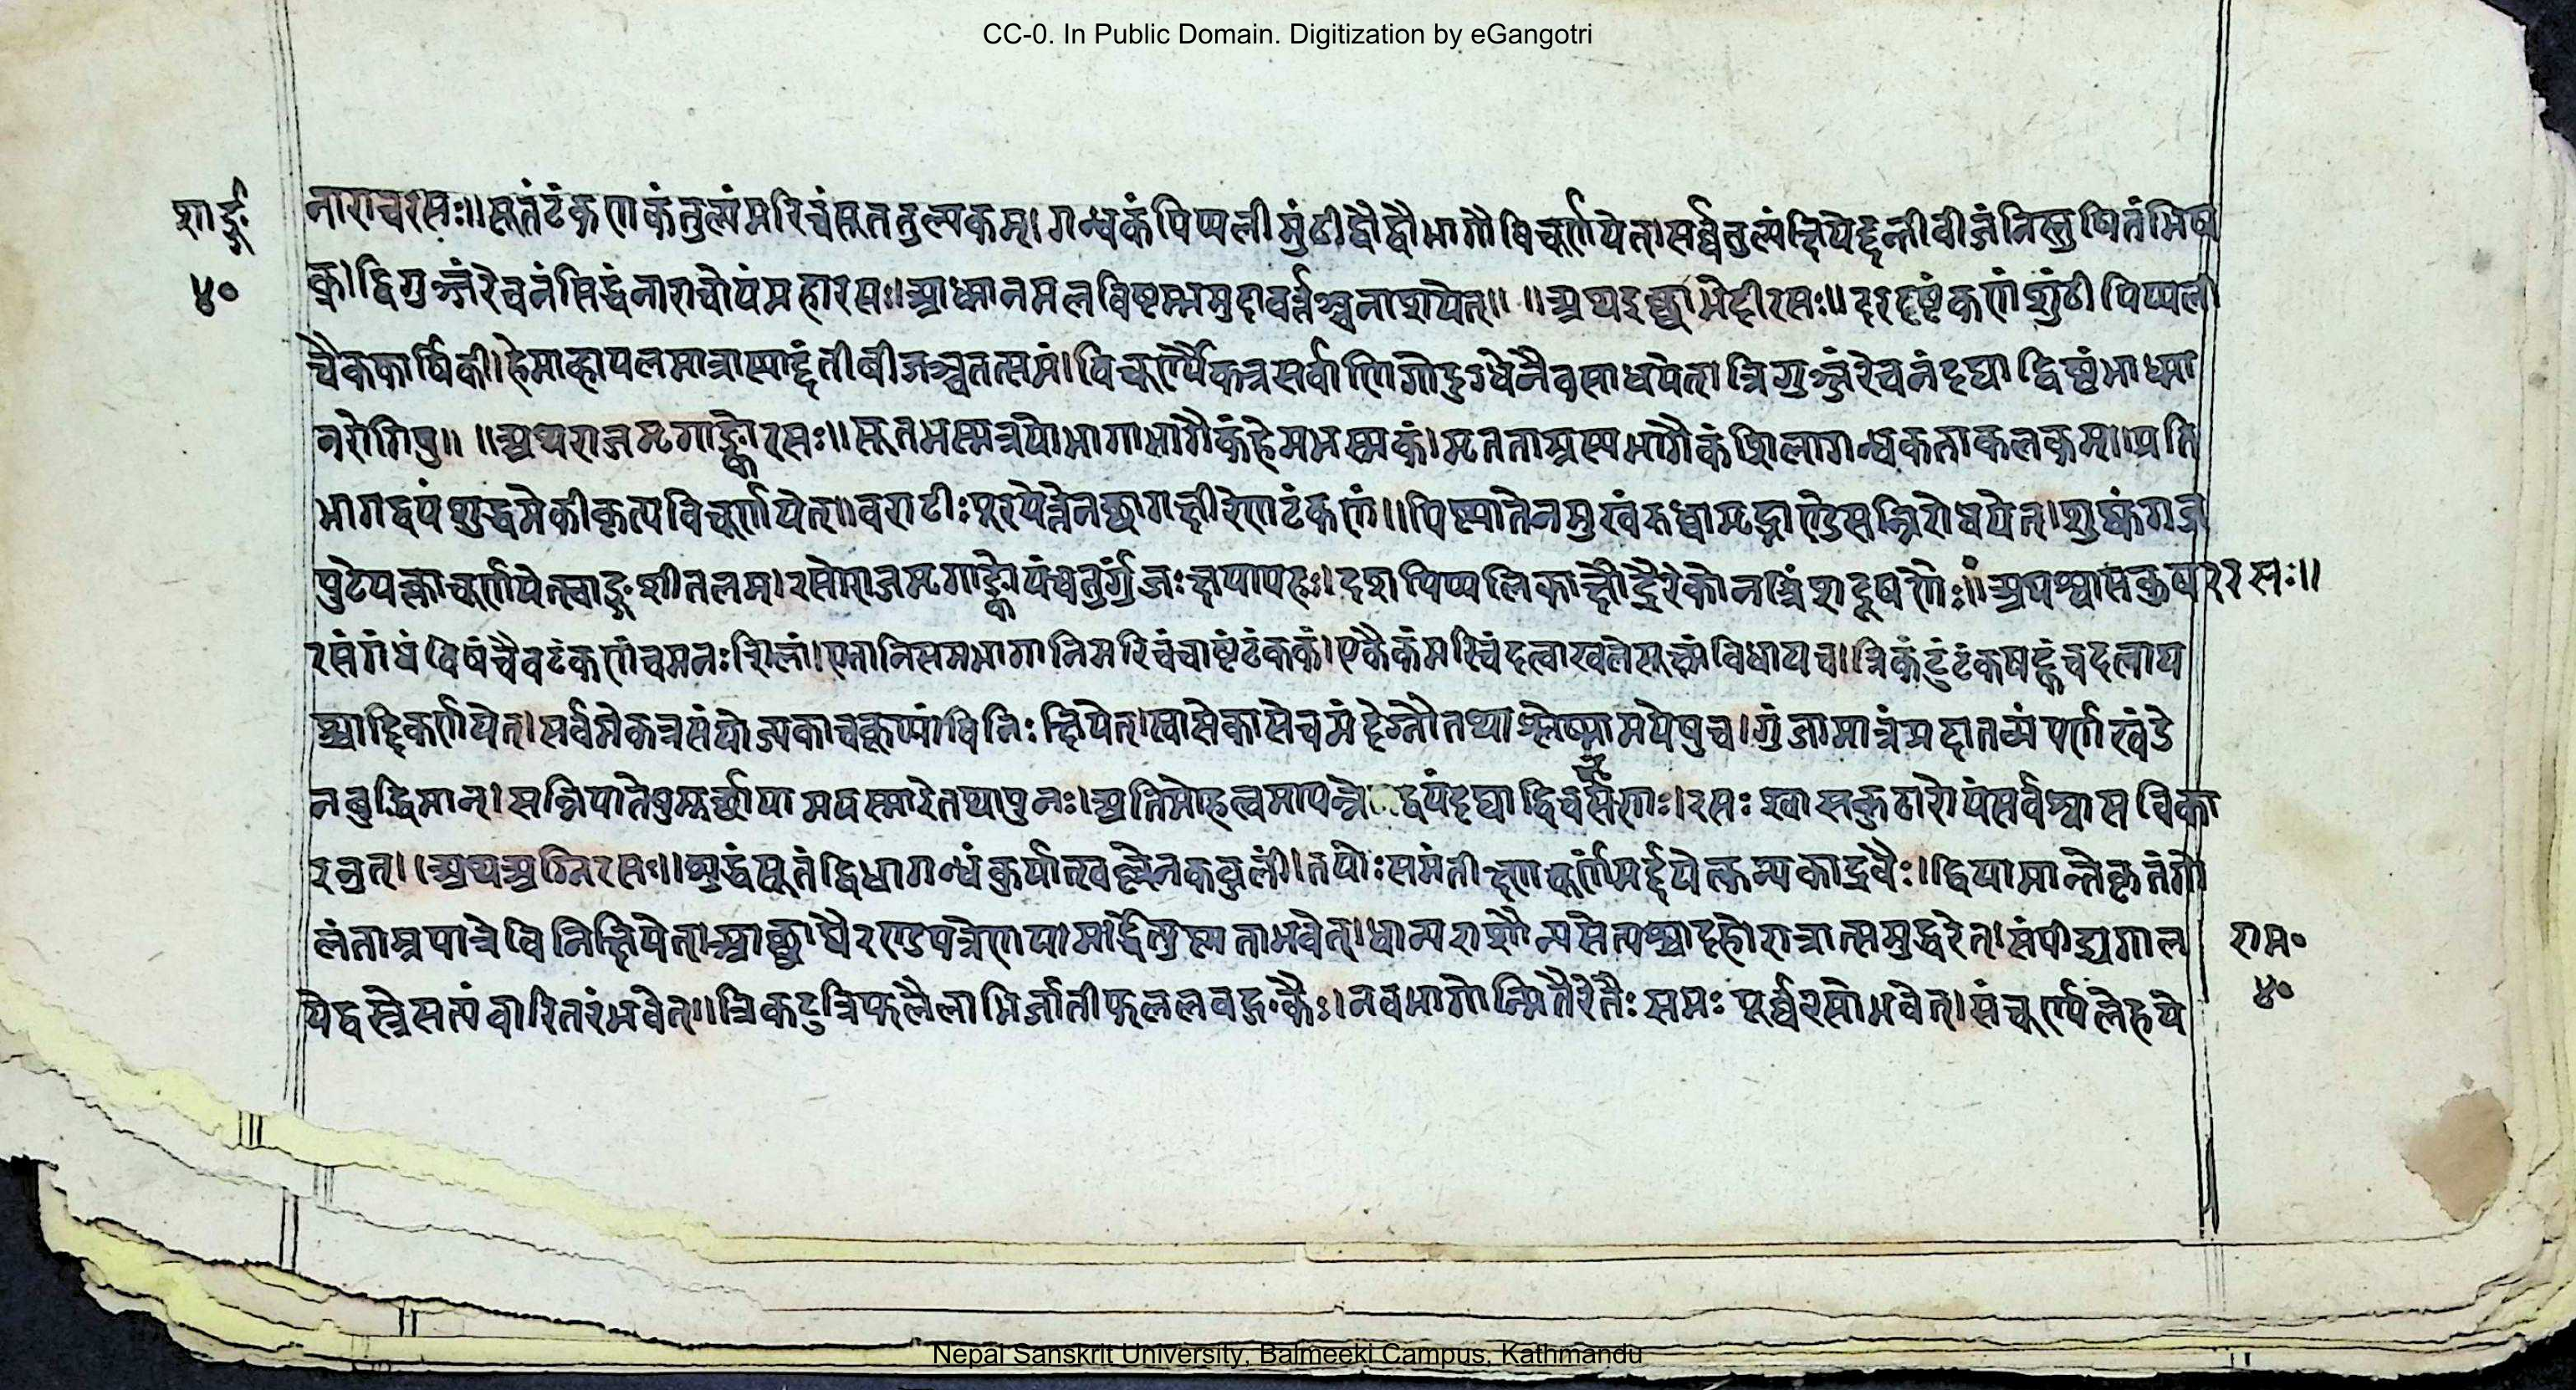 CC-0. In Public Domain. Digitization by eGangotri
शार्ङ्ग
४०
नाराचरसः॥सूतंटंकणकंतुल्यंमरिचंसूततुल्यकम्।गन्धकंपिप्पलीसुंठीद्वौद्वौभागौविचूर्णयेत्।सर्व्वतुल्यंक्षिपेद्दन्तीवीजंनिस्तुषितंभिष
क्।द्विगुञ्जंरेचनंसिद्धंनाराचोयंमहारसः।आध्मानमलविष्टम्भमुदावर्त्तञ्चनाशयेत्॥ ॥अथइच्छाभेदीरसः॥दरदष्टंकणंशुंठीपिप्पली
चैककार्षिकी।हेमाव्हापलमात्रास्याद्दंतीबीजञ्चतत्समं।विचूर्ण्यैकत्रसर्वाणिगोदुग्धेनैवसाधयेत्।त्रिगुञ्जंरेचनंदद्याद्विष्टंभाध्मा
नरोगिषु॥ ॥अथराजमृगाङ्कोरसः॥सूतभस्मत्रयोभागाभागैकंहेमभस्मकं।मृतताम्रस्यभागैकंशिलागन्धकतालकम्।प्रति
भागद्वयंशुद्धमेकीकृत्यविचूर्णयेत्॥वराटीःपूरयेत्तेनछागक्षीरेणटंकणं॥पिष्ट्वातेनमुखंरुध्वामृद्भाण्डेसन्निरोधयेत्।शुष्कंगज
पुटेपक्त्वाचूर्णयेत्स्वाङ्गशीतलम्।रसोराजमृगाङ्कोयंचतुर्गुंजःक्षयापहः।दशपिप्पलिकाक्षौद्रैरेकोनत्रिंशदूषणैः॥अथश्वासकुठाररसः॥
रसंगंधंविषंचैवटंकणंचमनःशिलां।एतानिसमभागानिमरिचंचाष्टंटंककं।एकैकंमरिचंदत्वाखलेसूक्ष्मंविधायच।त्रिकंटुंटंकषट्कंचदत्वाप
श्चाद्विचूर्णयेत्।सर्वमेकत्रसंयोज्यकाचकूप्यांविनिःक्षिपेत्।श्वासेकासेचमंदेग्नौतथाश्लेष्मामयेषुच।गुंजामात्रंप्रदातव्यंपर्णखंडे
नबुद्धिमान्।सन्निपातेषुमूर्छायामपस्मारेतथापुनः।अतिमोहत्वमापन्नेद्वयंदद्याद्विचक्षणः।रसःश्वासकुठारोयंसर्वश्वासविका
रनुत्।॥अथअग्निरसः॥शुद्धंसूतंद्विधागन्धंकुर्यात्खल्वेनकज्जलीं।तयोःसमंतीक्ष्णचूर्णंमर्द्दयेत्कन्यकाद्रवैः।द्वियामान्तेकृतंगो
लंताम्रपात्रेविनिक्षिपेत्।आच्छाद्यैरण्डपत्रेणयामार्द्धेत्युष्मताभवेत्।धान्यराशौन्यसेत्पश्चादहोरात्रात्समुद्धरेत्।संपीड्यगाल
येद्वस्त्रेसत्यंवारितरंभवेत्॥त्रिकटुत्रिफलैलाभिर्जातीफललवङ्गकैः।नवभागोन्मितैरेतैःसमःपूर्व्वरसोभवेत्।संचूर्ण्यलेहये
राम०
४०
Nepal Sanskrit University, Balmeeki Campus, Kathmandu